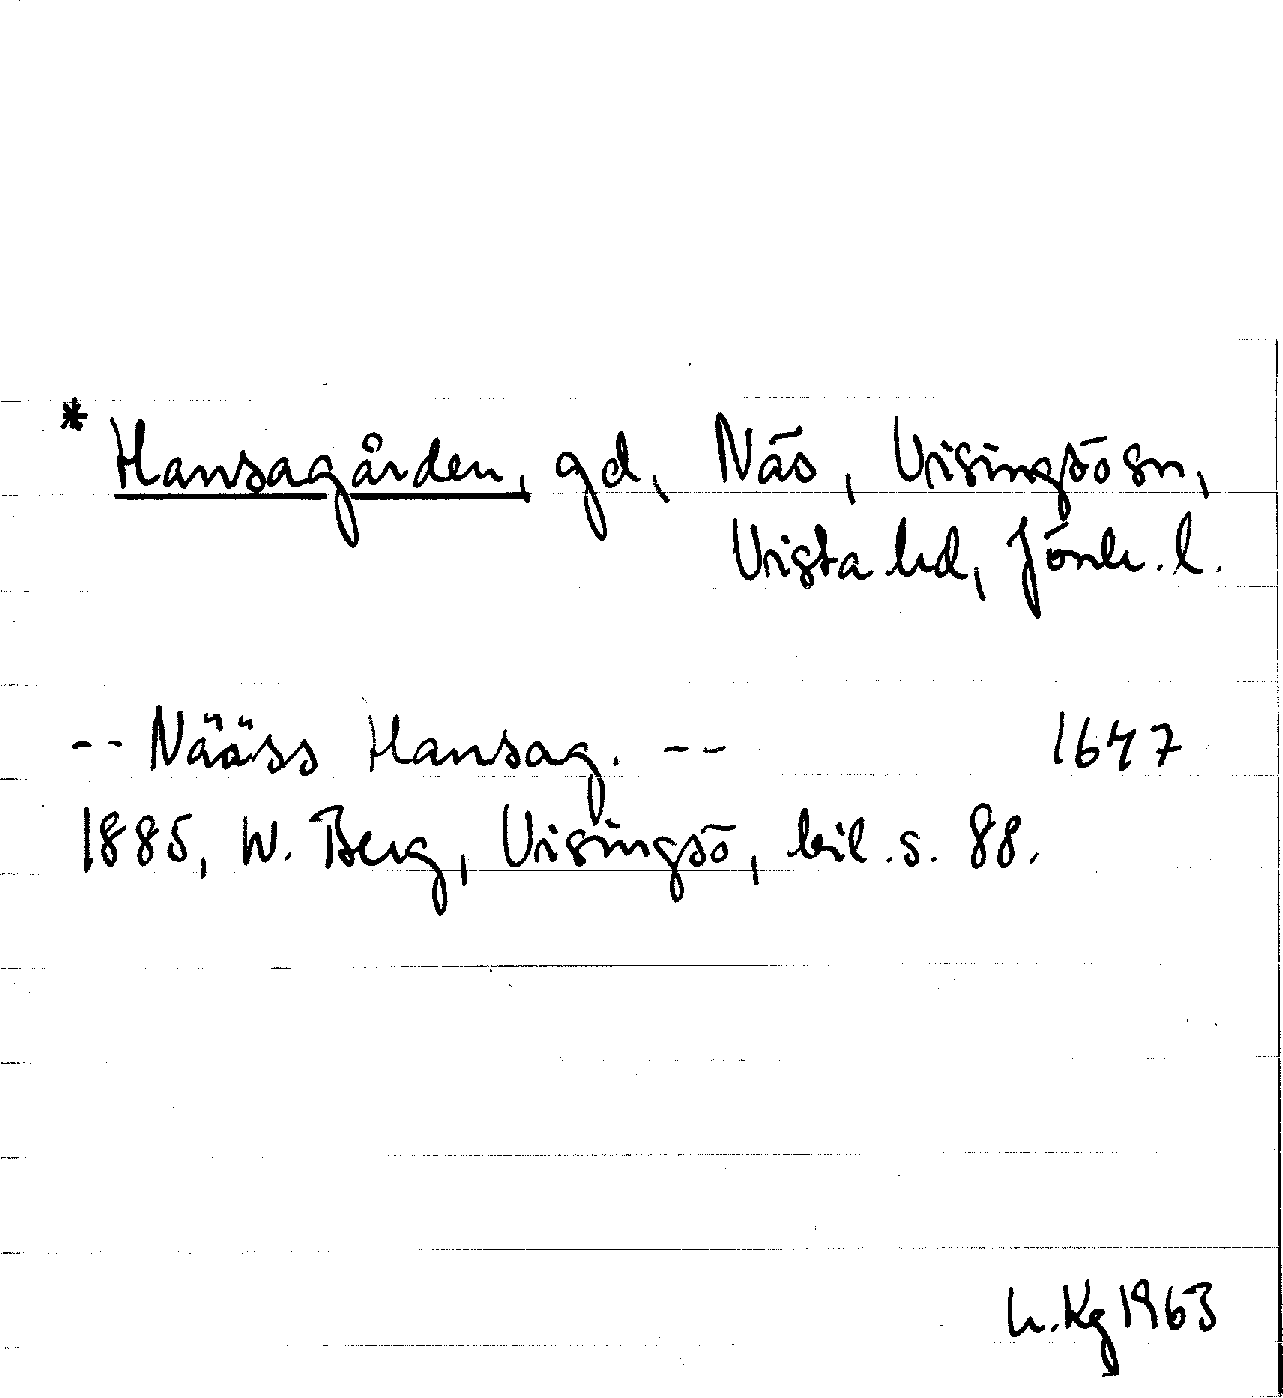 * Hansagården, gd, Näs, Visingsö sn,
Vista hd, Jönk. l.
-- Nääss Hansag. -- 1647
1885, W. Berg, Visingsö, bil. s. 88.
h. Kg 1963